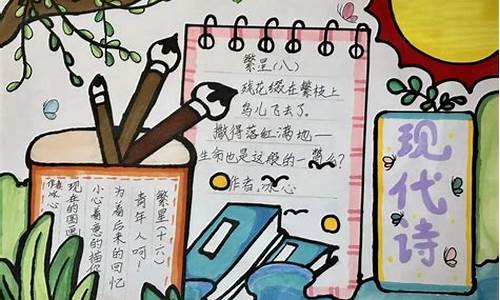 现代诗
繁星(八)
残花缀在繁枝上
鸟儿飞去了.
撒得落红满地—
生命也是这般的一瞥么?
作者:冰心
繁星(十六)
青年人呵!
为着后来的回忆
小心着意的描你
现在的图画
作者冰心